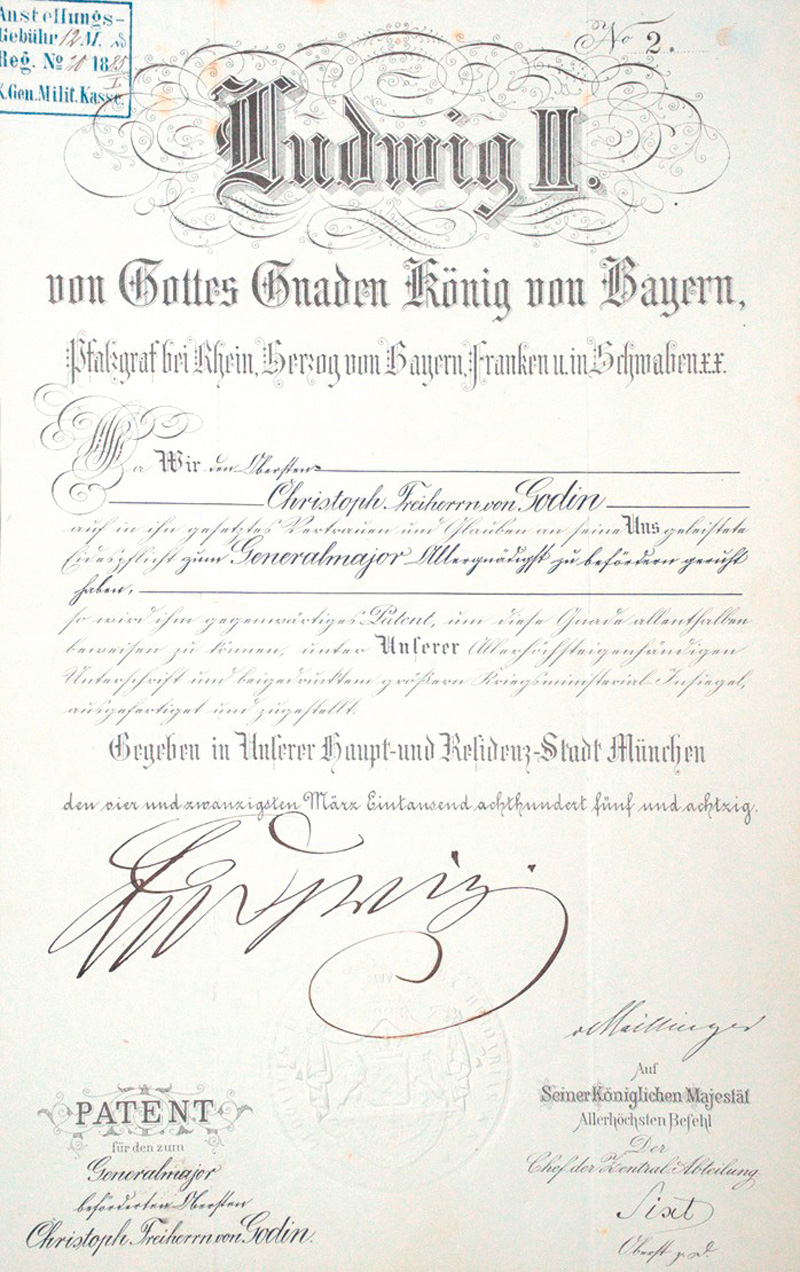 Anstellungs-
Gebühr 12 M. ₰
Reg. No 20 1885
K. Gen. Milit. Kasse.
No 2.
Ludwig II.
von Gottes Gnaden König von Bayern,
Pfalzgraf bei Rhein, Herzog von Bayern, Franken u. in Schwaben xx.
Da Wir den Obersten
Christoph Freiherrn von Godin
auf in ihn gesetztes Vertrauen und Glauben an seine Uns geleistete
Eidespflicht zum Generalmajor Allergnädigst zu befördern geruht
haben,
so wird ihm gegenwärtiges Patent, um diese Gnade allenthalben
beweisen zu können, unter Unserer Allerhöchsteigenhändigen
Unterschrift und beigedrucktem größern Kriegsministerial-Insiegel,
ausgefertiget und zugestellt.
Gegeben in Unserer Haupt- und Residenz-Stadt München
den vier und zwanzigsten März Eintausend achthundert fünf und achtzig.
Ludwig.
v Maillinger
Auf
Seiner Königlichen Majestät
Allerhöchsten Befehl
Der
Chef der Zentral-Abteilung
Sixt
Oberst z. D.
PATENT
für den zum
Generalmajor
beförderten Obersten
Christoph Freiherrn von Godin.